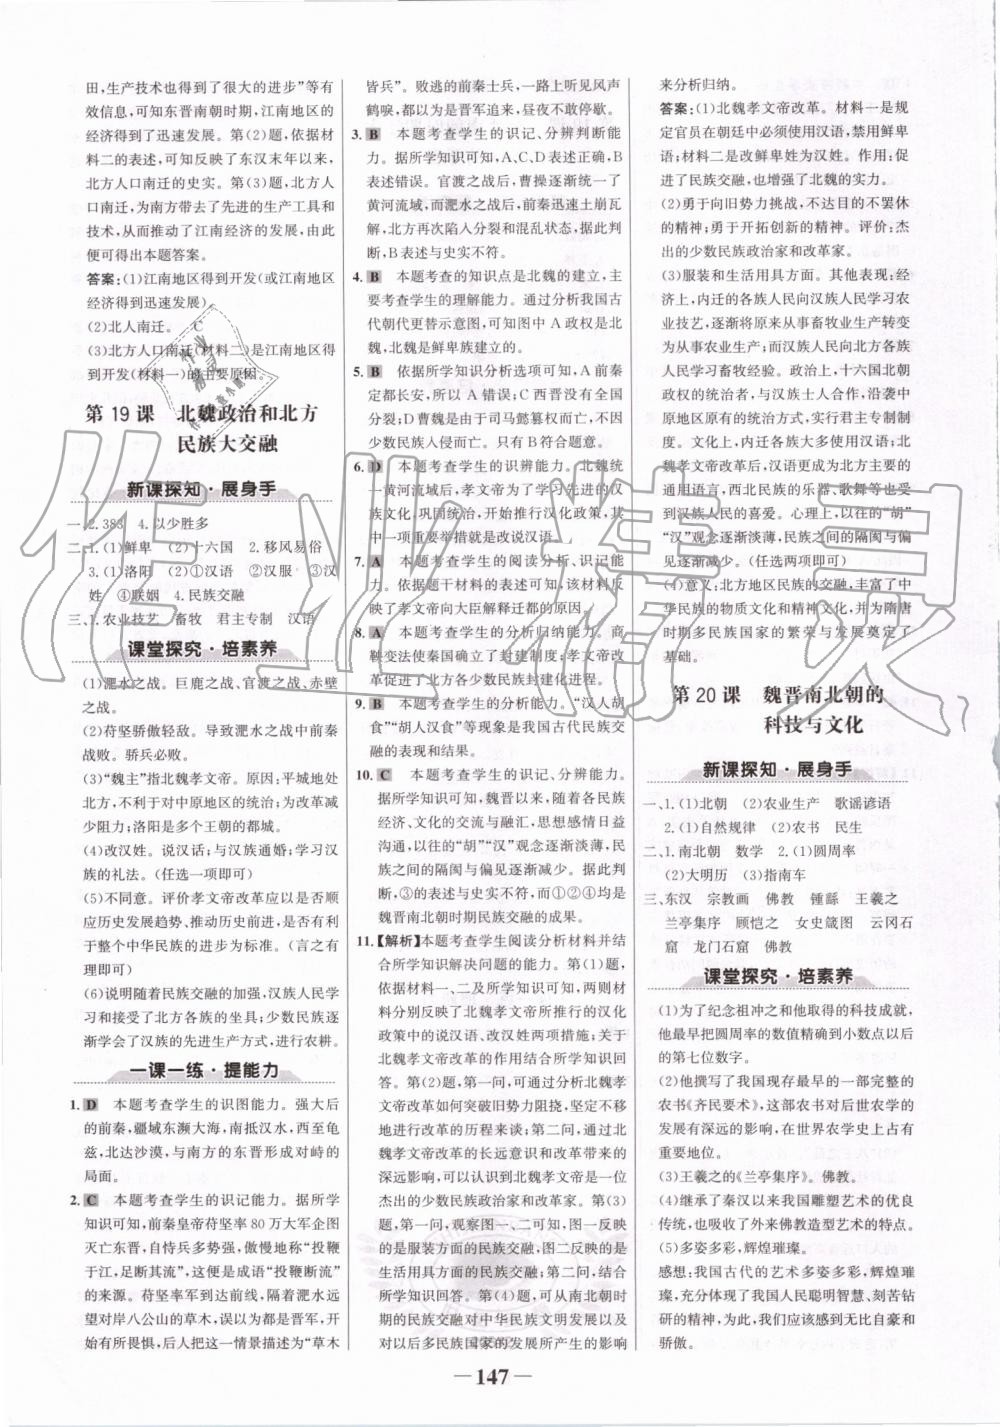 田,生产技术也得到了很大的进步”等有
效信息,可知东晋南朝时期,江南地区的
经济得到了迅速发展。第(2)题,依据材
料二的表述,可知反映了东汉末年以来,
北方人口南迁的史实。第(3)题,北方人
口南迁,为南方带去了先进的生产工具和
技术,从而推动了江南经济的发展,由此
便可得出本题答案。
答案:(1)江南地区得到开发(或江南地区
经济得到迅速发展)。
(2)北人南迁。 C
(3)北方人口南迁(材料二)是江南地区得
到开发(材料一)的主要原因。
第 19 课 北魏政治和北方
民族大交融
新课探知·展身手
一、2.383 4.以少胜多
二、1.(1)鲜卑 (2)十六国 2.移风易俗
3.(1)洛阳 (2)①汉语 ②汉服 ③汉
姓 ④联姻 4.民族交融
三、1.农业技艺 畜牧 君主专制 汉语
课堂探究·培素养
(1)淝水之战。巨鹿之战,官渡之战、赤壁
之战。
(2)苻坚骄傲轻敌。导致淝水之战前秦
战败。骄兵必败。
(3)“魏主”指北魏孝文帝。原因:平城地处
北方,不利于对中原地区的统治;为改革减
少阻力;洛阳是多个王朝的都城。
(4)改汉姓。说汉话;与汉族通婚;学习汉
族的礼法。(任选一项即可)
(5)不同意。评价孝文帝改革应以是否顺
应历史发展趋势、推动历史前进,是否有利
于整个中华民族的进步为标准。(言之有
理即可)
(6)说明随着民族交融的加强,汉族人民学
习和接受了北方各族的坐具;少数民族逐
渐学会了汉族的先进生产方式,进行农耕。
一课一练·提能力
1. D 本题考查学生的识图能力。强大后
的前秦,疆域东濒大海,南抵汉水,西至龟
兹,北达沙漠,与南方的东晋形成对峙的
局面。
2. C 本题考查学生的识记能力。据所学
知识可知,前秦皇帝苻坚率 80 万大军企图
灭亡东晋,自恃兵多,傲慢地称“投鞭
于江,足断其流”,这是成语“投鞭断流”
的来源。苻坚率军临近淝水,隔着淝水无
缘对岸八公山的草木,误以为都是晋军,开
始有所畏惧,后人把这一情景描述为“草木
皆兵”。败逃的前秦士兵,一路上听见风声
鹤唳,都以为是晋军追来,昼夜不敢停歇。
3. B 本题考查学生的识记、分辨判断能
力。据所学知识可知,A、C、D表述正确,B
表述错误。官渡之战后,曹操逐渐统一了
黄河流域,而淝水之战后,前秦迅速土崩瓦
解,北方再次陷入分裂和混乱状态,据此判
断,B表述与史实不符。
4. B 本题考查的知识点是北魏的建立,主
要考查学生的理解能力。通过分析我国古
代朝代更替示意图,可知图中 A 政权是北
魏,北魏是鲜卑族建立的。
5. B 依据所学知识分析选项可知,A 前秦
定都长安,所以 A 错误;C 西晋没有全国
分裂;D 曹魏是由于司马懿篡权而亡,不是
少数民族人侵而亡。只有 B 符合题意。
6. D 本题考查学生的识辨能力。北魏统
一黄河流域后,孝文帝为了学习先进的汉
族文化,巩固统治,开始推行汉化政策,其
中一项重要举措就是改说汉语。
7. A 本题考查学生的阅读分析、识记能
力。依据题干材料的表述可知,该材料反
映了孝文帝向大臣解释迁都的原因。
8. A 本题考查学生的分析归纳能力。商
鞅变法使秦国确立了封建制度;孝文帝改革
促进了北方各少数民族封建化进程。
9. B 本题考查学生的分析能力。“汉人胡
食”“胡人汉食”等现象是我国古代民族交
融的表现和结果。
10. C 本题考查学生的识记、分辨能力。
据所学知识可知,魏晋以来,随着各民族
经济、文化的交流与融汇,思想感情日益
沟通,以往的“胡”“汉”观念逐渐淡薄,民
族之间的隔阂与偏见逐渐减少。据此判
断,③的表述与史实不符,而①②④均是
魏晋南北朝时期民族交融的成果。
11.【解析】本题考查学生阅读分析材料并结
合所学知识解决问题的能力。第(1)题,
依据材料一、二及所学知识可知,两则材
料分别反映了北魏孝文帝推行的汉化
政策中的说汉语、改汉姓两项措施;关于
北魏孝文帝改革的作用结合所学知识回
答。第(2)题,第一问,可通过分析北魏孝
文帝改革如何突破旧势力阻挠,坚定不移
地进行改革的历程来谈;第二问,通过北
魏孝文帝改革的长远意识和改革带来的
深远影响,可以认识到北魏孝文帝是一位
杰出的少数民族政治家和改革家。第(3)
题,第一问,观察图一、二可知,图一反映的
是服装方面的民族交融,图二反映的是
生活用具方面的民族交融;第二问,结合
所学知识回答。第(4)题,可从南北朝时
期的民族交融对中华民族文明发展以及
以后多民族国家的发展所产生的影响
来分析归纳。
答案:(1)北魏孝文帝改革。材料一是规
定官员在朝廷中必须使用汉语,禁用鲜卑
语;材料二是改鲜卑姓为汉姓。作用:促
进了民族交融,也增强了北魏的实力。
(2)勇于向旧势力挑战,不达目的不罢休
的精神,勇于开拓创新的精神。评价:杰
出的少数民族政治家和改革家。
(3)服装和生活用具方面。表现:经
济上,内迁的各族人民向汉族人民学习农
业技艺,逐渐将原来从事畜牧业生产转变
为从事农业生产;而汉族人民向北方各族
人民学习畜牧经验。政治上,十六国北朝
政权的统治者,与汉族士人合作,沿袭中
原地区原有的统治方式,实行君主专制制
度。文化上,内迁各族大多有自己的语言,北
魏孝文帝改革后,汉语成为北方主要的
通用语言,西北民族的乐器、歌舞等也受
到汉族人民的喜爱。心理上,以往的“胡”
“汉”观念逐渐淡薄,民族之间的隔阂与偏
见逐渐减少。(任选两项即可)
(4)意义:北方地区民族的交融,丰富了中
华民族的物质文化和精神文化,并为隋唐
时期多民族国家的繁荣与发展奠定了
基础。
第 20 课 魏晋南北朝的
科技与文化
新课探知·展身手
一、1.(1)北朝 (2)农业生产 歌谣谚语
2.(1)自然规律 (2)农书 民生
二、1.南北朝 数学 2.(1)圆周率
(2)大明历 (3)指南车
三、东汉 宗教画 佛教 锺繇 王羲之
兰亭集序 顾恺之 女史箴图 云冈石
窟 龙门石窟 佛教
课堂探究·培素养
(1)为了纪念祖冲之和他取得的科技成就,
他最早把圆周率的数值精确到小数点以后
的第七位数字。
(2)他撰写了我国现存最早的一部完整的
农书《齐民要术》,这部农书对后世农学的
发展有深远的影响,在世界农学史上占有
重要地位。
(3)王羲之的《兰亭集序》。佛教。
(4)继承了秦汉以来我国雕塑艺术的优良
传统,又吸收了外来佛教造型艺术的特点。
(5)多姿多彩,辉煌璀璨。
感想:我国古代的艺术多姿多彩,辉煌璀
璨,充分体现了我国人民聪明智慧、刻苦钻
研的精神,为此,我们应该感到无比自豪和
骄傲。
— 147 —
作业精灵